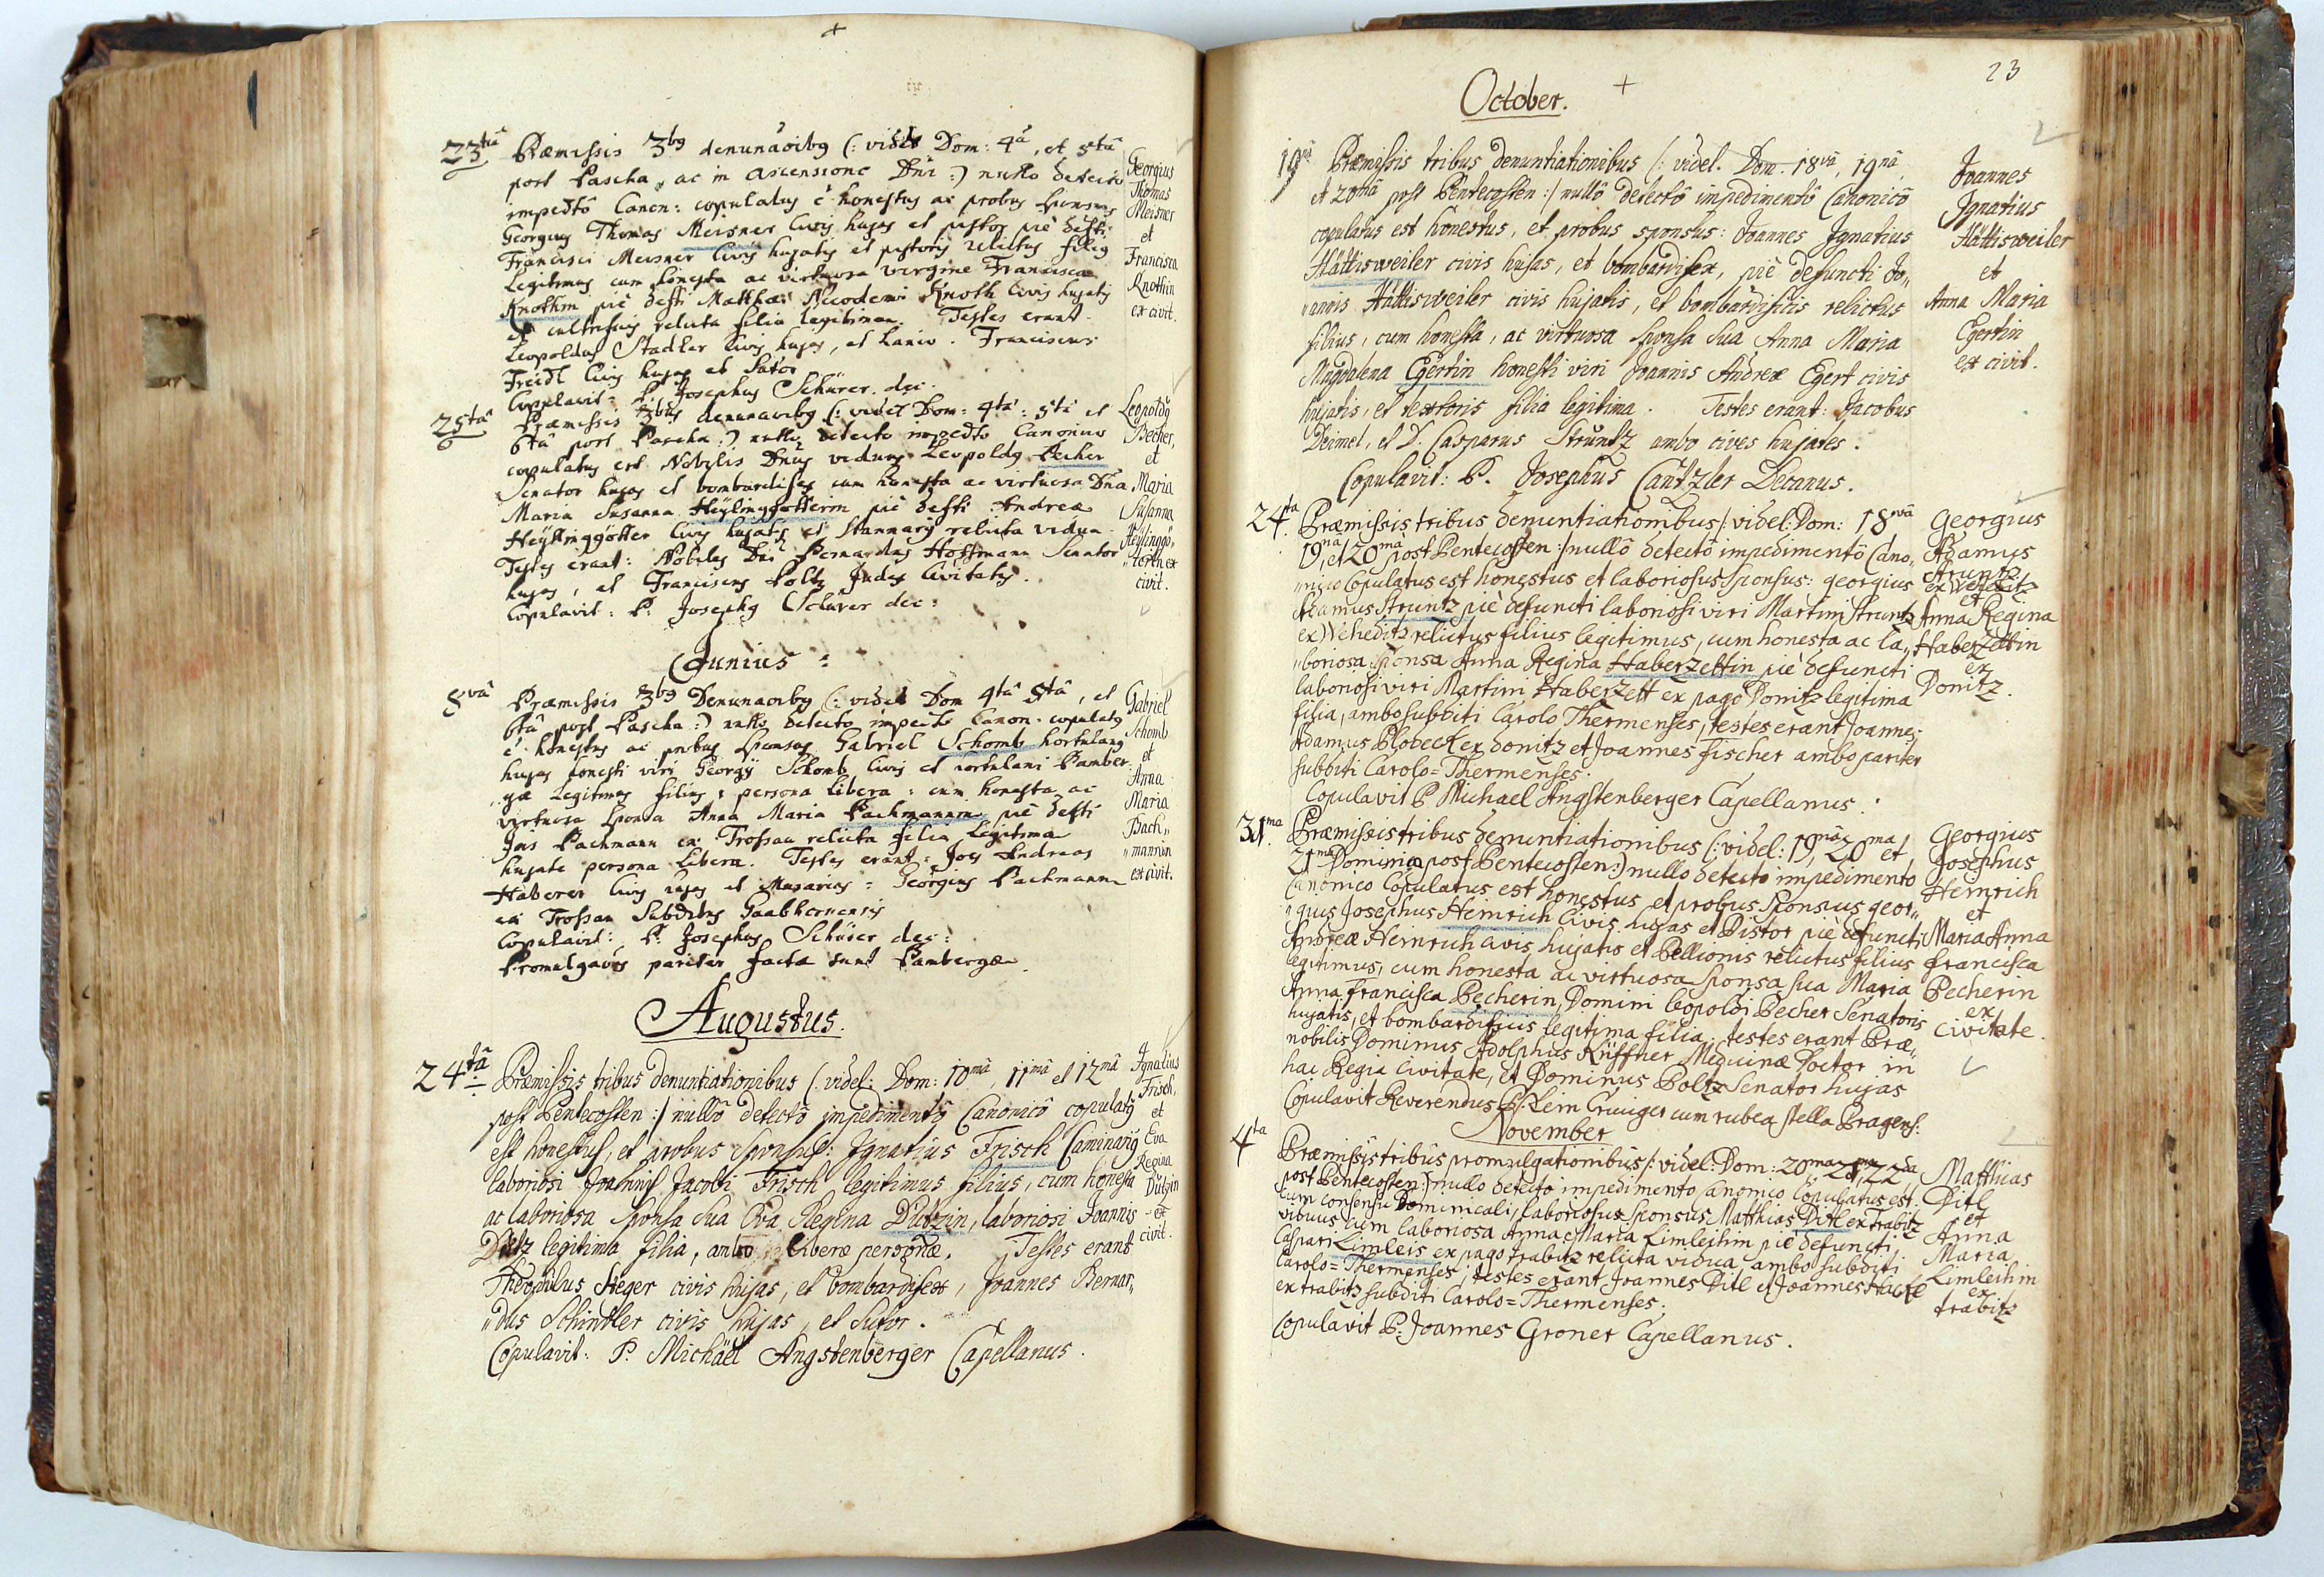 23tiâ Præmissis 3bg denunãoibg (: videt Dom: 4â, et 5tâ
post Pascha, ac in Ascensione Dñi :) nullo detecto
impedtô Canon: copulatus ê honestus ac probus sponsus
Georgius Thomas Meisner Civis hujas et pistor piè defti
Francisci Meisner Civis hujatis et pistoris relictus filius
Legitimus cum honesta ac virtuosa virgine Francisca
Knothin piè defti Matthæi Nicodemi Knoth Civis hujatis
et cultrificis relicta filia legitima. Testes erant
Leopoldus Stadler Civis hujas, et Lanio. Franciscus
Freidl Civis hujas et Sator
Copulavit: P. Josephus Schürer dec.
Georgius
Thomas
Meisner
et
Francisca
Knothin
ex civit.
25tâ Præmissis 3bus denunãoibg (: videt Dom: 4tâ 5tâ et
6tâ post Pascha :) nullo detecto impedto Canonico
copulatus est Nobilis Dñus viduus Leopoldg Pecher
Senator hujas et bombardifex cum honesta ac virtuosa Dña
Maria Susanna Heÿlinggötterin piè defti Andreæ
Heÿllinggötter Civis hujatis et Stannarij relicta vidua
Testes erant: Nobiles Dñi Bernardus Hoffmann Senator
hujas, et Franciscus Poltz Judex Civitatis.
Copulavit: P: Josephg Schürer dec:
Leopoldg
Becher,
et
Maria
Susanna
Heÿlinggö„
„tterin ex
civit.
Junius :
8vâ Præmissis 3bg Denunãoibg (: videt Dom 4tâ 5tâ, et
6tâ post Pascha :) nullo detecto impedto Canon. copulatg
ê honestus ac probus sponsus Gabriel Schomb hortulang
hujas honesti viri Georgÿ Schomb Civis et hortulani Pamber„
„gæ Legitimus filius : persona libera : cum honesta ac
virtuosa Sponsa Anna Maria Pachmannin piè defti
Jois Pachmann ex Trossau relicta filia Legitima
hujate persona libera. Testes erant : Joes Andreas
Haberer Civis hujas et Murarius : Georgius Pachmann
ex Trossau Subditus
Copulavit: P: Josephus Schürer dec:
Promulgaões pariter factæ sunt Pambergæ.
Gabriel
Schomb
et
Anna
Maria
Bach„
„mannin
ex civit.
Augustus.
24tâ Præmissis tribus denuntiationibus (: videl: Dom: 10mâ, 11mâ et 12mâ
post Pentecosten :/ nullô detectô impedimentô Canonicô copulatg
est honestus, et probus Sponsus: Jgnatius Frisch Caminarig
laboriosi Joannis Jacobi Frisch legitimus filius, cum honesta
ac laboriosa sponsa sua Eva Regina Dützin, laboriosi Joannis
Dütz legitima filia, ambo liberæ personæ. Testes erant
Theophilus Steger civis hujas, et bombardifex, Joannes Bernar„
„dus Schindler civis hujas, et Sutor.
Copulavit: P. Michäel Angstenberger Capellanus.
Jgnatius
Frisch,
et
Eva
Regina
Dützin
ex
civit.
23
October.
19nâ Præmissis tribus denuntiationibus (: videl. Dom. 18vâ, 19nâ,
et 20mâ post Pentecosten :/ nullô detectô impedimentô Canonicô
copulatus est honestus, et probus sponsus: Joannes Jgnatius
Hättisweiler civis hujas, et bombardifex, piè defuncti Jo„
„annis Hättisweiler civis hujatis, et bombardificis relictus
filius, cum honesta, ac virtuosa Sponsa Sua Anna Maria
Magdalena Egertin honesti viri Joannis Andreæ Egert civis
hujatis, et textoris filia legitima. Testes erant: Jacobus
Deimel, et D. Casparus Struntz ambo cives hujates.
Copulavit: P. Josephus Cantzler Decanus.
Joannes
Jgnatius
Hättisweiler
et
Anna Maria
Egertin
ex civit.
24ta Præmissis tribus denuntiationibus (: videl: Dom: 18vâ
19nâ, et 20mâ post Pentecosten :/ nullô detectô impedimentô Cano„
„nico Copulatus est honestus et laboriosus Sponsus: georgius
Adamus Struntz piè defuncti laboriosi viri Martini Struntz
ex Weheditz relictus filius legitimus, cum honesta ac la„
„boriosa sponsa Anna Regina Haberzettin piè defuncti
laboriosi viri Martini Haberzett ex pago Donitz legitima
filia, ambo subditi Carolo Thermenses, testes erant Joannes
Adamus Plobeck ex donitz et Joannes fischer ambo pariter
subditi Carolo=Thermenses.
Copulavit P Michael Angstenberger Capellanus.
Georgius
Adamus
Struntz
ex Weheditz
et
Anna Regina
Haberzettin
ex
Donitz.
31ma. Præmissis tribus denuntiationibus (: videl: 19nâ, 20ma, et
21ma Dominica post Pentecosten :) nullo detecto impedimento
Canonico Copulatus est honestus et probus Sponsus geor„
„gius Josephus Heinrich Civis hujas et Pistor piè defuncti
Andreæ Heinrich civis hujatis et Pellionis relictus filius
legitimus, cum honesta ac virtuosa sponsa sua Maria
Anna francisca Becherin, Domini leopoldi Becher Senatoris
hujatis, et bombardificis legitima filia. testes erant Præ„
nobilis Dominus Adolphus Küffner Medicinæ Doctor in
hac Regia Civitate, et Dominus Poltz Senator hujas
Copulavit Reverendus P. Cruciger cum rubea stella Pragens:
Georgius
Josephus
Heinrich
et
Maria Anna
francisca
Pecherin
ex
civitate.
November
4ta Præmissis tribus promulgationibus (: videl: Dom: 20ma 21ma, 22da
post Pentecosten :) nullo detecto impedimento Canonico Copulatus est
cum consensu Dominicali, laboriosus sponsus Matthias Ditl ex Trabitz
viduus cum laboriosa Anna Maria Limleihin piè defuncti
Caspari Limleis ex pago trabitz relicta vidua ambo subditi
Carolo=Thermenses, testes erant Joannes Ditl et Joannes
ex trabitz subditi Carolo=Thermenses.
Copulavit P: Joannes Groner Capellanus.
Matthias
Ditl
et
Anna
Maria
Limleihin
ex
trabitz